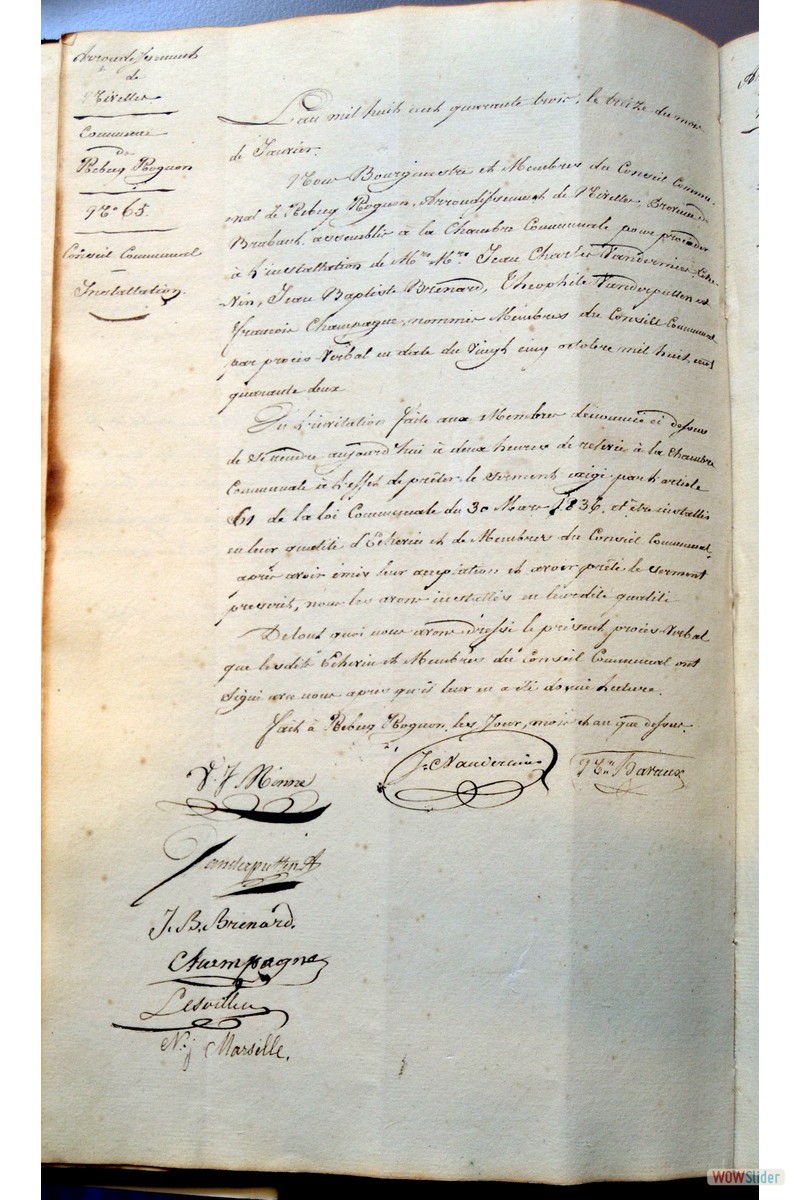 Arrondissement
de
Nivelles
Commune
de
Rebecq Rognon
No 65.
Conseil Communal
Installation.
L'an mil huit cent quarante trois, le treize du mois
de Janvier.
Nous Bourgmestre et Membres du Conseil Commu-
nal de Rebecq Rognon, Arrondissement de Nivelles Province de
Brabant, assemblés à la Chambre Communale pour procéder
à l'installation de Mrs Mrs Jean Charles Vandernier, Eche-
vin, Jean Baptiste Brénard, Théophile Vanderputten et
François Champagne, nommés Membres du Conseil Communal
par procès Verbal en date du Vingt cinq octobre mil huit cent
quarante deux
Vu l'invitation faite aux Membres dénommés ci dessus
de se rendre aujourd'hui à deux heures de relevée à la Chambre
Communale à l'effet de prêter le serment exigé par l'article
61 de la loi Communale du 30 Mars 1836, et être installés
en leur qualité d'Echevin et de Membres du Conseil Communal,
après avoir émis leur acceptation et avoir prêté le serment
prescrit, nous les avons installés en leur dite qualité.
De tout quoi nous avons dressé le présent procès Verbal
que lesdits Echevin et Membres du Conseil Communal ont
signé avec nous après qu'il leur en a été donné lecture.
Fait à Rebecq Rognon, les Jour, mois et an que dessus.
J. Minne
Havaux
Vanderputten
J. B. Brénard.
Champagne
N. j Marsille.
WOWSlider